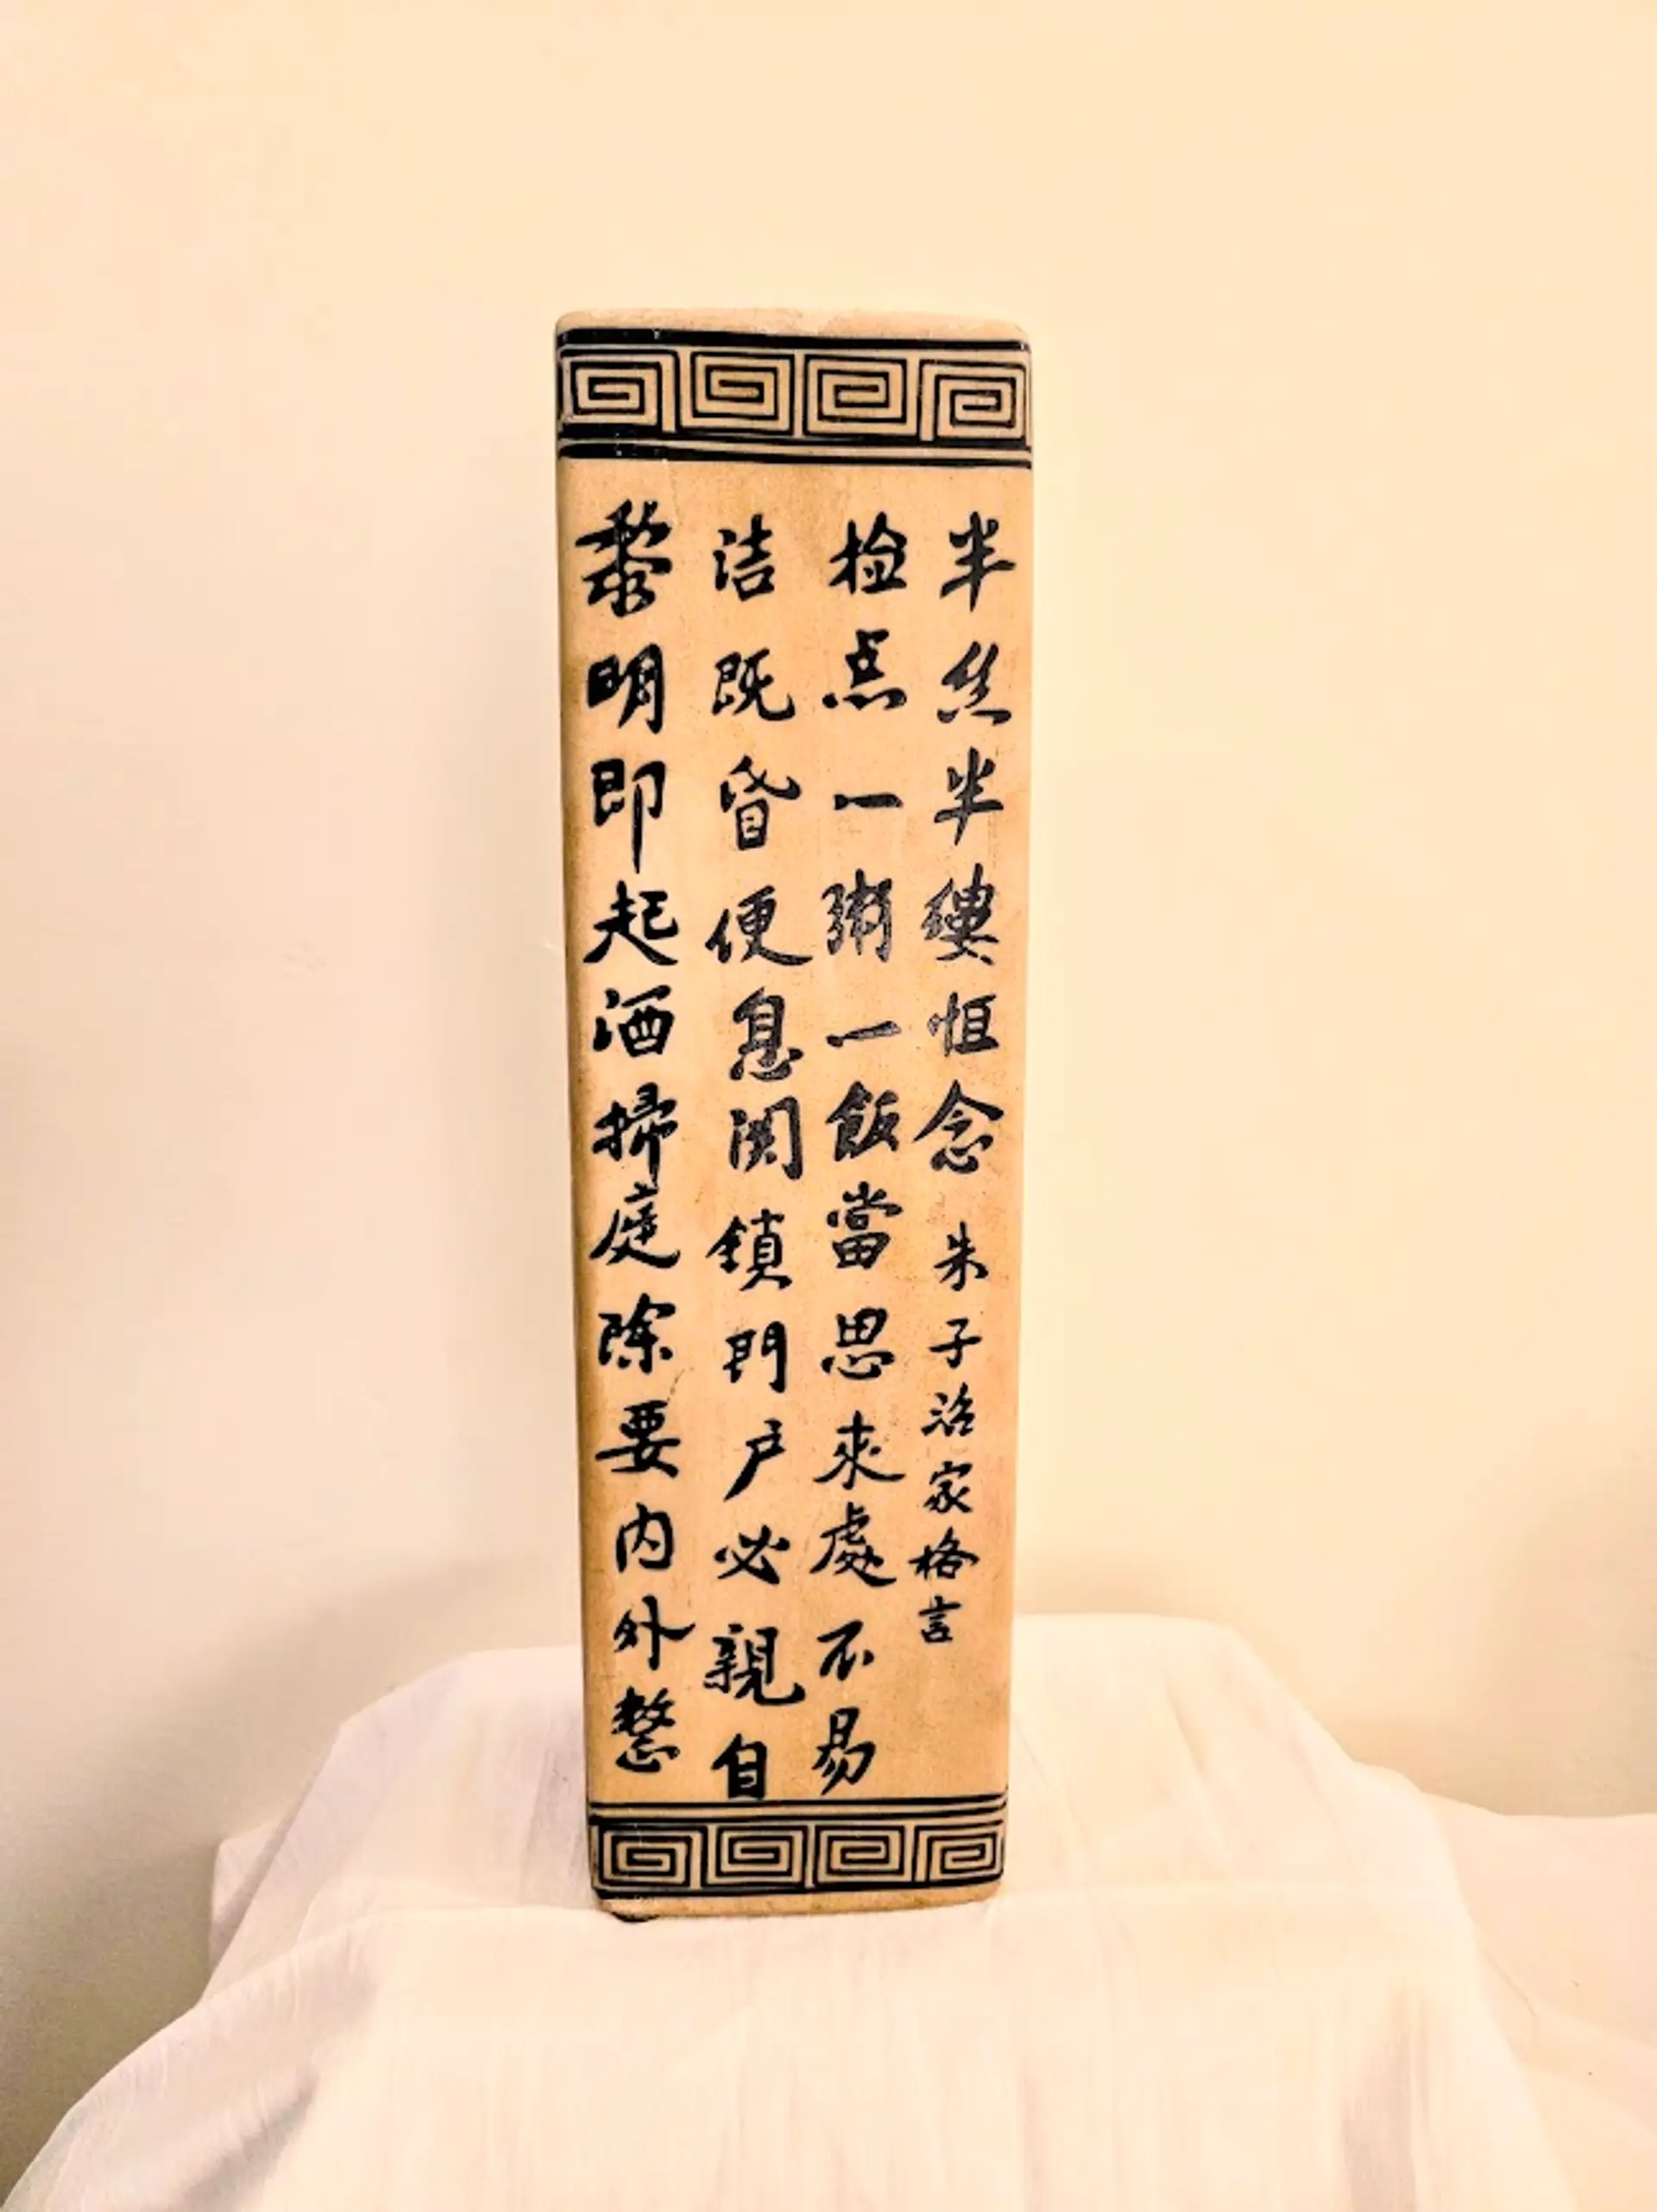 黎明即起洒掃庭除要内外整
洁既昏便息関鎖門户必親自
检点一粥一飯當思來處不易
半丝半縷恒念 朱子治家格言